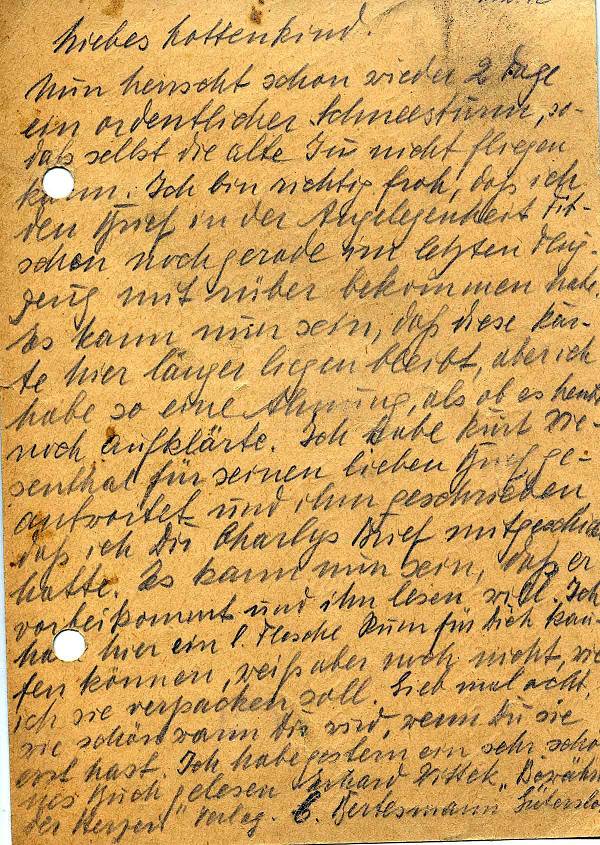 Liebes Lottenkind.
Nun herrscht schon wieder 2 Tage
ein ordentlicher Schneesturm, so-
daß selbst die alte Ju nicht fliegen
kann. Ich bin richtig froh, daß ich
den Brief in der Angelegenheit
noch gerade im letzten Flug-
zeug mit rüber bekommen habe.
Es kann nun sein, daß diese Kar-
te hier länger liegen bleibt, aber ich
habe so eine Ahnung, als ob es heute
noch aufklärte. Ich habe Kurt Wie-
senthal für seinen lieben Brief ge-
antwortet und ihm geschrieben
daß ich Dir Charlys Brief mitgeschickt
hatte. Es kann nun sein, daß er
vorbeikommt und ihn lesen will. Ich
habe hier ein l. Flasche Rum für Dich kau-
fen können, weiß aber noch nicht, wie
ich sie verpacken soll. Gieb mal acht,
wie schön warm Dir wird, wenn Du sie
erst hast. Ich habe gestern ein sehr schö-
nes Buch gelesen Erhard Wittek „Bewährung
der Herzen" Verlag. C. Bertelsmann Gütersloh